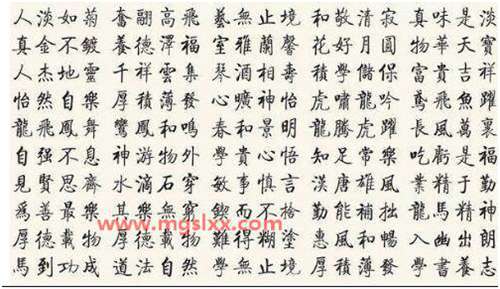 人淡如菊 奮翮高飛 藝無止境 和敬清寂 真味是淡
真金不鍍 養德澤福 室雅蘭馨 花好月圓 物華天寶
人杰地靈 千祥雲集 琴酒相壽 積學儲保 富貴吉祥
怡然自樂 厚積薄發 心曠神怡 虎嘯龍吟 鳶飛魚躍
龍飛鳳舞 鸞鳳和鳴 春和景明 龍騰虎躍 長風萬裏
自强不息 神游物外 學貴心悟 知足常樂 吃虧是福
見賢思齊 水滴石穿 敏事慎言 漢唐雄風 業精于勤
爲善最樂 樂無窮 鍥而不捨 勤能補拙 龍馬精神
www.mgslxx.com
厚德載物 德載物 難得糊塗 惠風和暢 入幽出朗
馬到功成 道法自然 學無止境 厚積薄發 學書養志